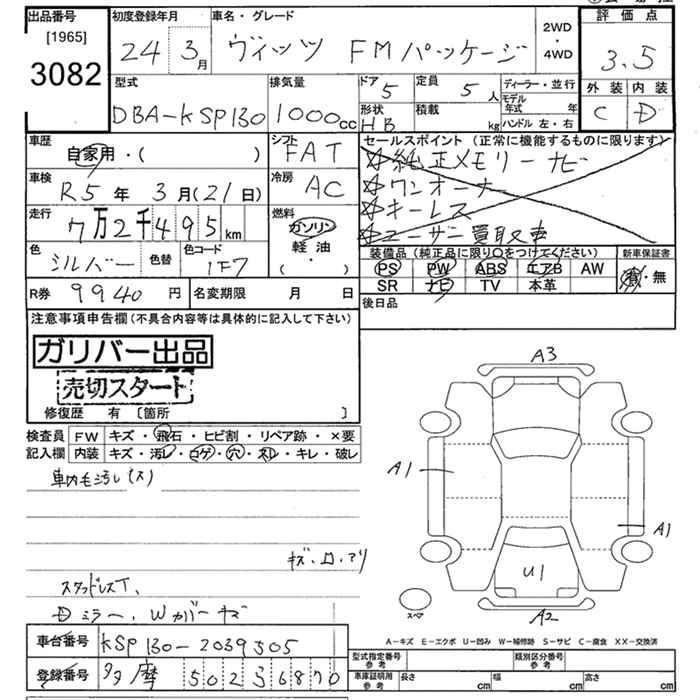 出品番号
[1965]
3082
初度登録年月
24 3月
車名・グレード
ヴィッツ FMパッケージ
2WD
・
4WD
評価点
3.5
外装 内装
C D
型式
DBA-KSP130
排気量
1000cc
ドア
5
定員
5人
形状
HB
積載
kg
ディーラー・並行
モデル年式 年
ハンドル 左・右
車歴
自家用・( )
シフト
FAT
車検
R5年 3月(21日)
冷房
AC
走行
7万2千495km
燃料
ガソリン
軽油
・( )
色
シルバー
色替
色コード
1F7
セールスポイント(正常に機能するものに限ります)
☆純正メモリーナビ
☆ワンオーナー
☆キーレス
☆ユーザー買取車
装備品(純正品に限り○をつけてください)
PS PW ABS エアB AW
SR ナビ TV 本革
新車保証書
有・無
R券 9940円
名変期限 月 日
後日品
注意事項申告欄(不具合内容等は具体的に記入して下さい)
ガリバー出品
売切スタート
修復歴 有 [箇所 ]
検査員記入欄
FW キズ・飛石・ヒビ割・リペア跡・×要
内装 キズ・汚レ・コゲ・穴・スレ・キレ・破レ
車内毛汚し(大)
キズ・凹・アリ
スタッドレスT、
Dミラー、Wカバーキズ
A3
A1
A1
U1
A2
スペア
A-キズ E-エクボ U-凹み W-補修跡 S-サビ C-腐食 XX-交換済
車台番号 KSP130-2039505
登録番号 多摩 502 ま 6870
型式指定番号
参考
類別区分番号
参考
車庫証明用
参考
長さ cm
幅 cm
高さ cm